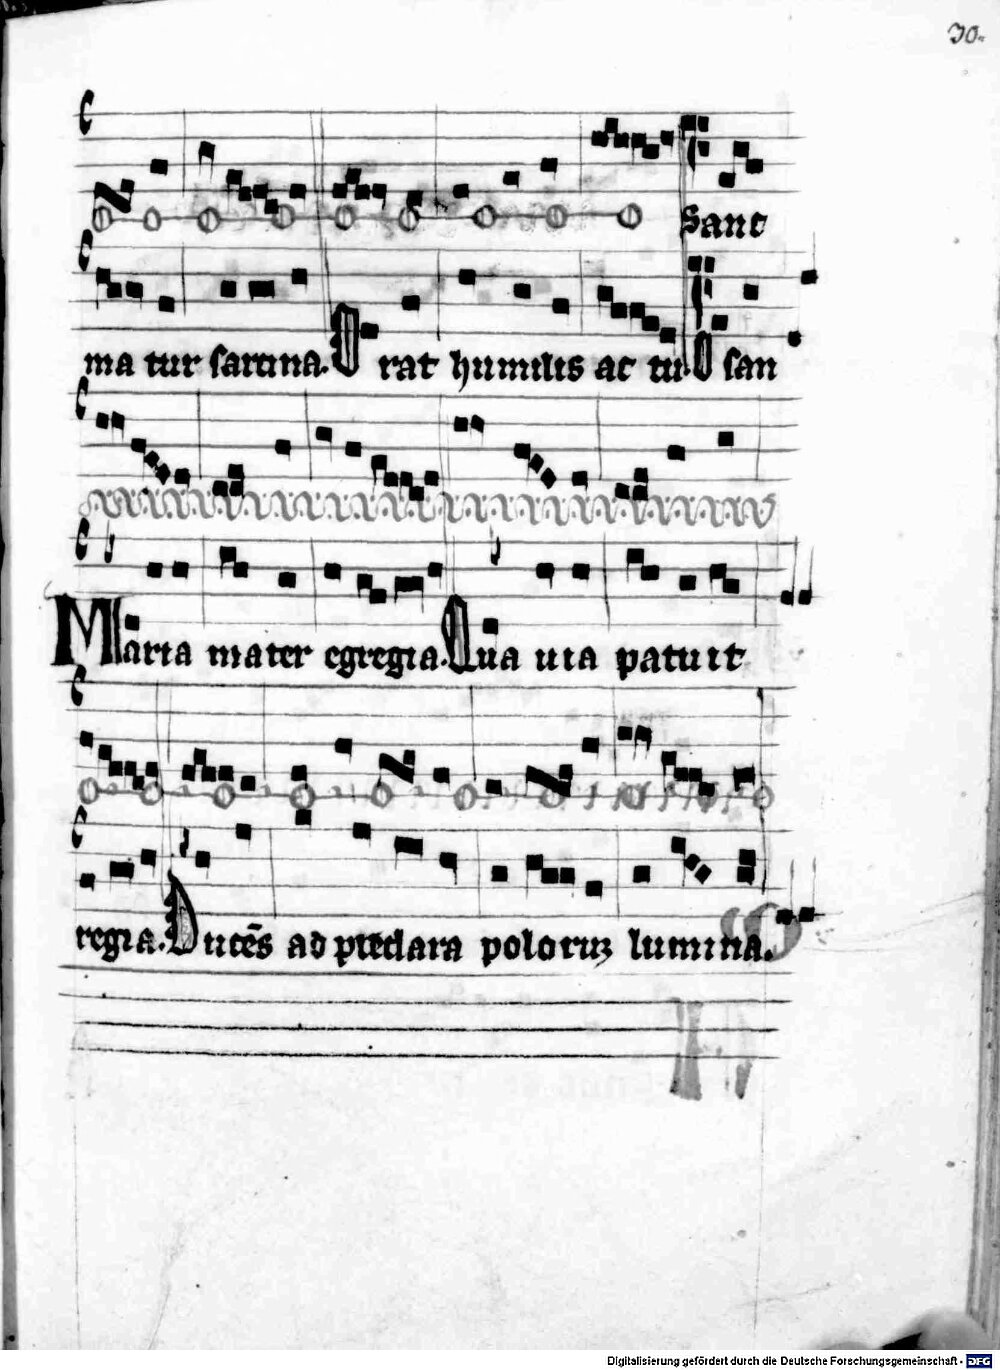 30.
Sanc
ma tur sarcina. O rat humilis ac tu. O san
Maria mater egregia. Qua uia patuit
regia. Ducẽs ad preclara polorum lumina.
Digitalisierung gefördert durch die Deutsche Forschungsgemeinschaft - DFG